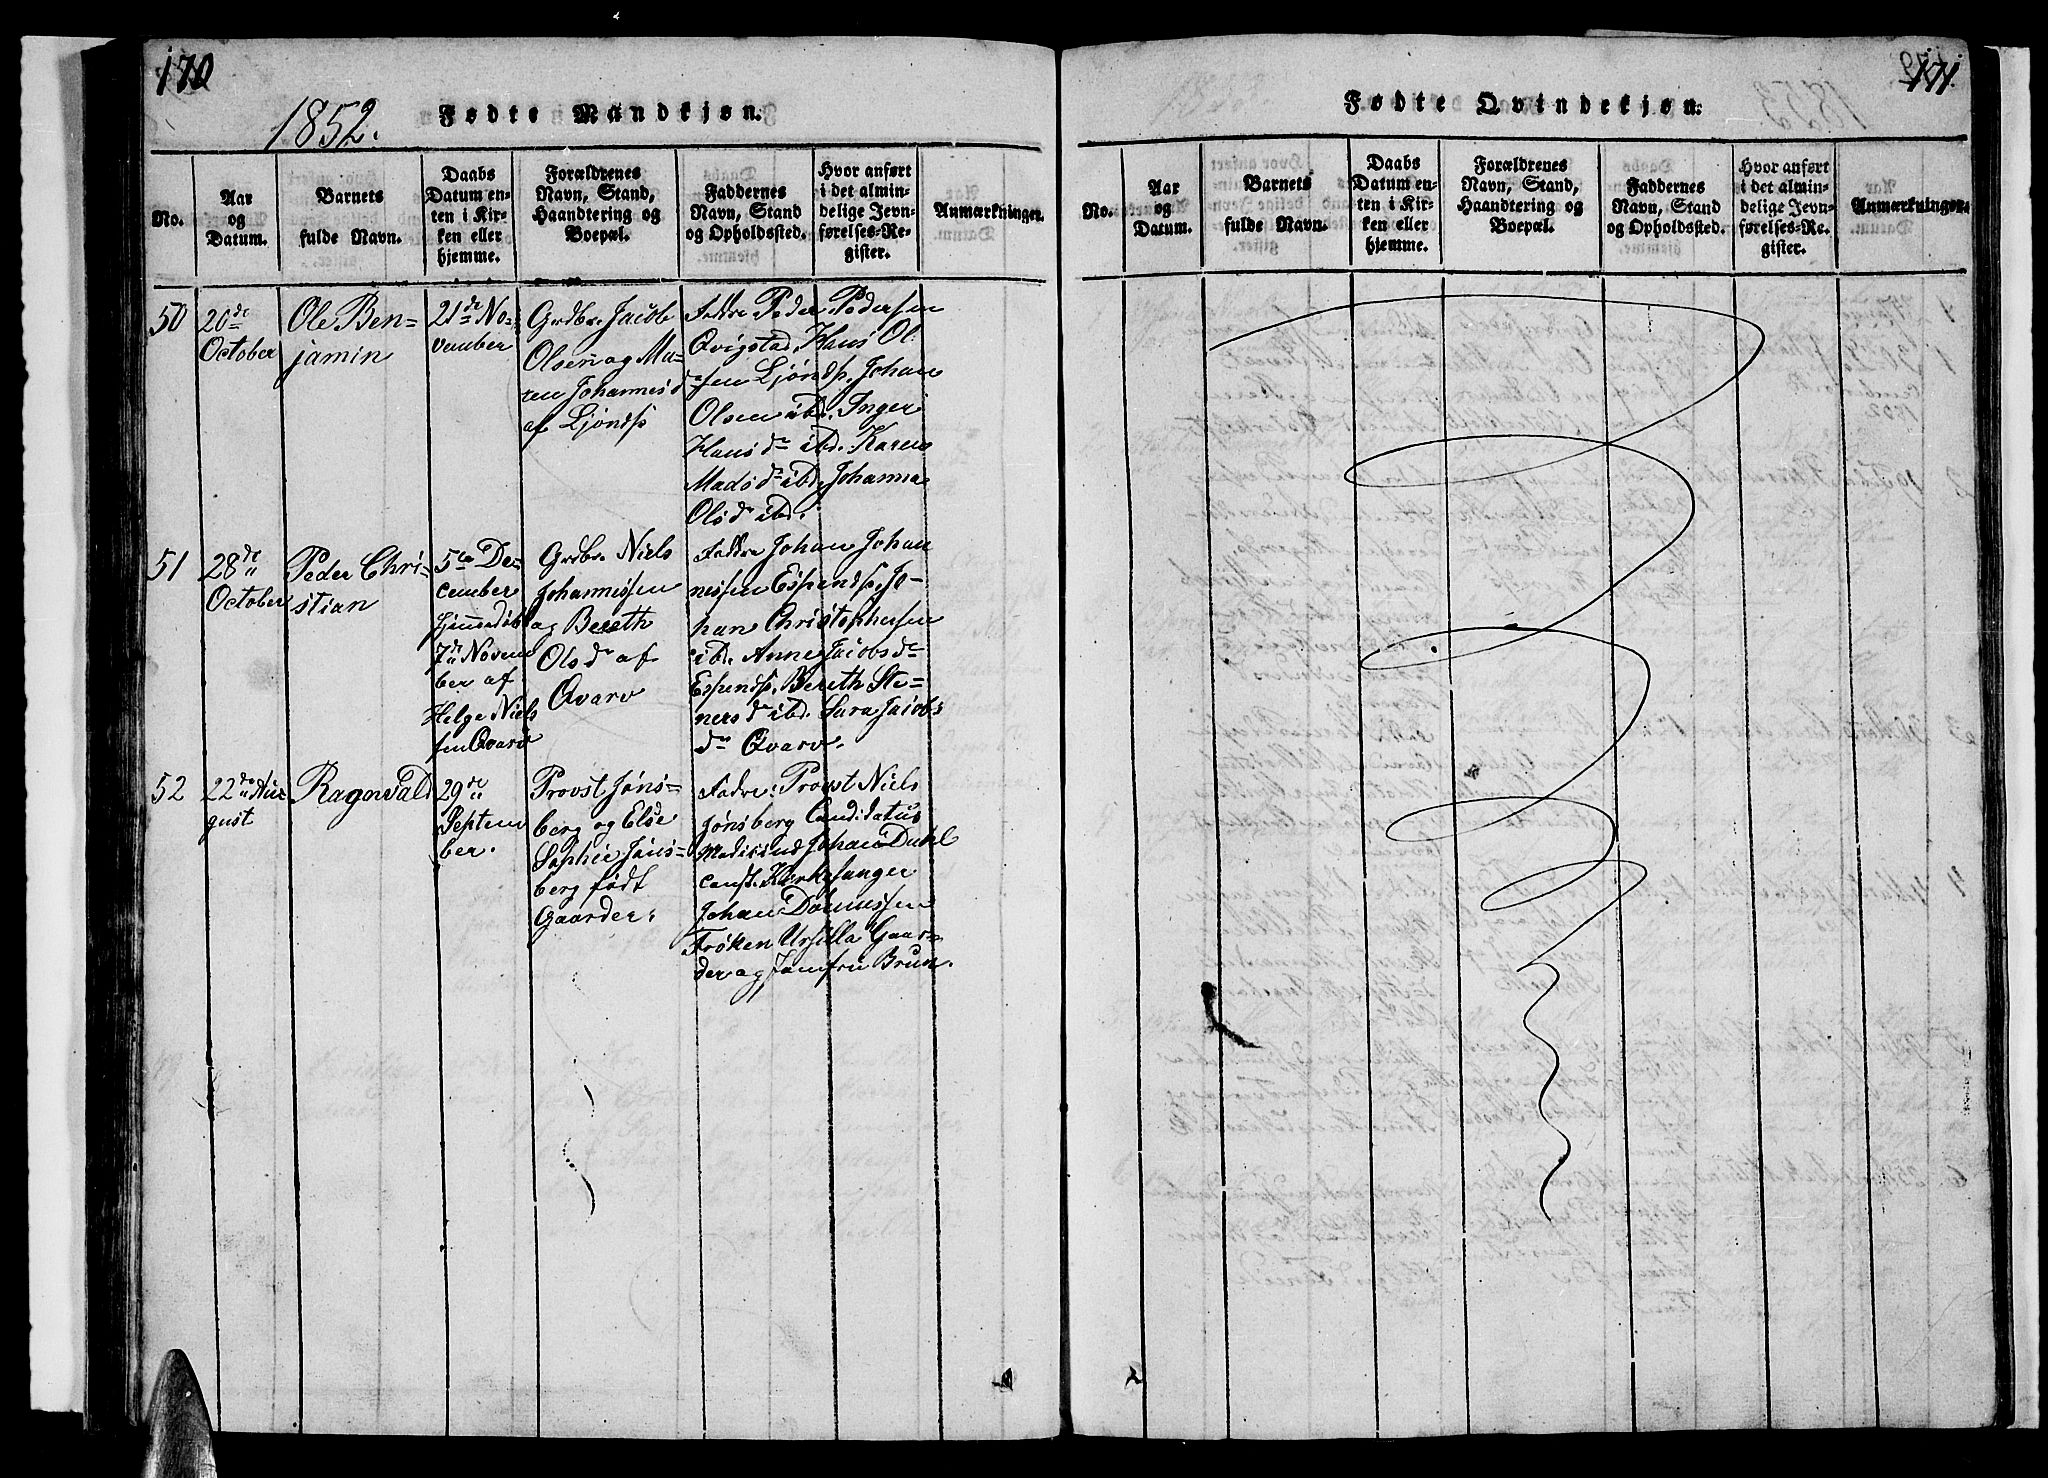 170
1852.
Fødte Mandkjøn.
No.
Aar
og
Datum.
Barnets
fulde Navn.
Daabs
Datum en-
ten i Kir-
ken eller
hjemme.
Forældrenes
Navn, Stand,
Haandtering og
Boepæl.
Faddernes
Navn, Stand
og Opholdssted.
Hvor anført
i det almin-
delige Jevn-
førelses-Re-
gister.
Anmærkninger.
50
20de
October
Ole Ben-
jamin
21de No-
vember
Grdbr. Jacob
Olsen og Ma-
ren Johannesd
af Ljøndsp
Faddre Peder Pedersen
Qvigstad, Hans Ol
sen Ljøndsp. Johan
Olsen ibd. Inger
Hansdr ibd. Karen
Madsdr ibd. Johanna
Olsdr ibd.
51
28de
October
Peder Chri-
stian
5te De-
cember
hjemmedøbt
7de Novem
ber af
Helge Niels
sen Qvarv
Grdbr. Niels
Johannissen
og Bereth
Olsdr af
Qvarv
Faddre Johan Johan
nessen Espendsp, Jo-
han Christophersen
ibd. Anne Jacobsdr
Espendsp. Bereth Ste-
nersdr ibd. Sara Jacobs
dr Qvarv.
52
22de Au
gust
Ragnvald
29de
Septem
ber.
Provst Jøns-
berg og Else
Sophie Jøns-
berg født
Gaarder.
Fadre: Provst Niels
Jønsberg Candidatus
Medisin Johan Dahl
const. Kirkesanger
Johan
Frøken Ursilla Gaar-
der og Jomfru Brun.
171.
Fødte Qvindekjøn.
No.
Aar
og
Datum.
Barnets
fulde Navn.
Daabs
Datum en-
ten i Kir-
ken eller
hjemme.
Forældrenes
Navn, Stand,
Haandtering og
Boepæl.
Faddernes
Navn, Stand
og Opholdssted.
Hvor anført
i det almin-
delige Jevn-
førelses-Re-
gister.
Anmærkninger.